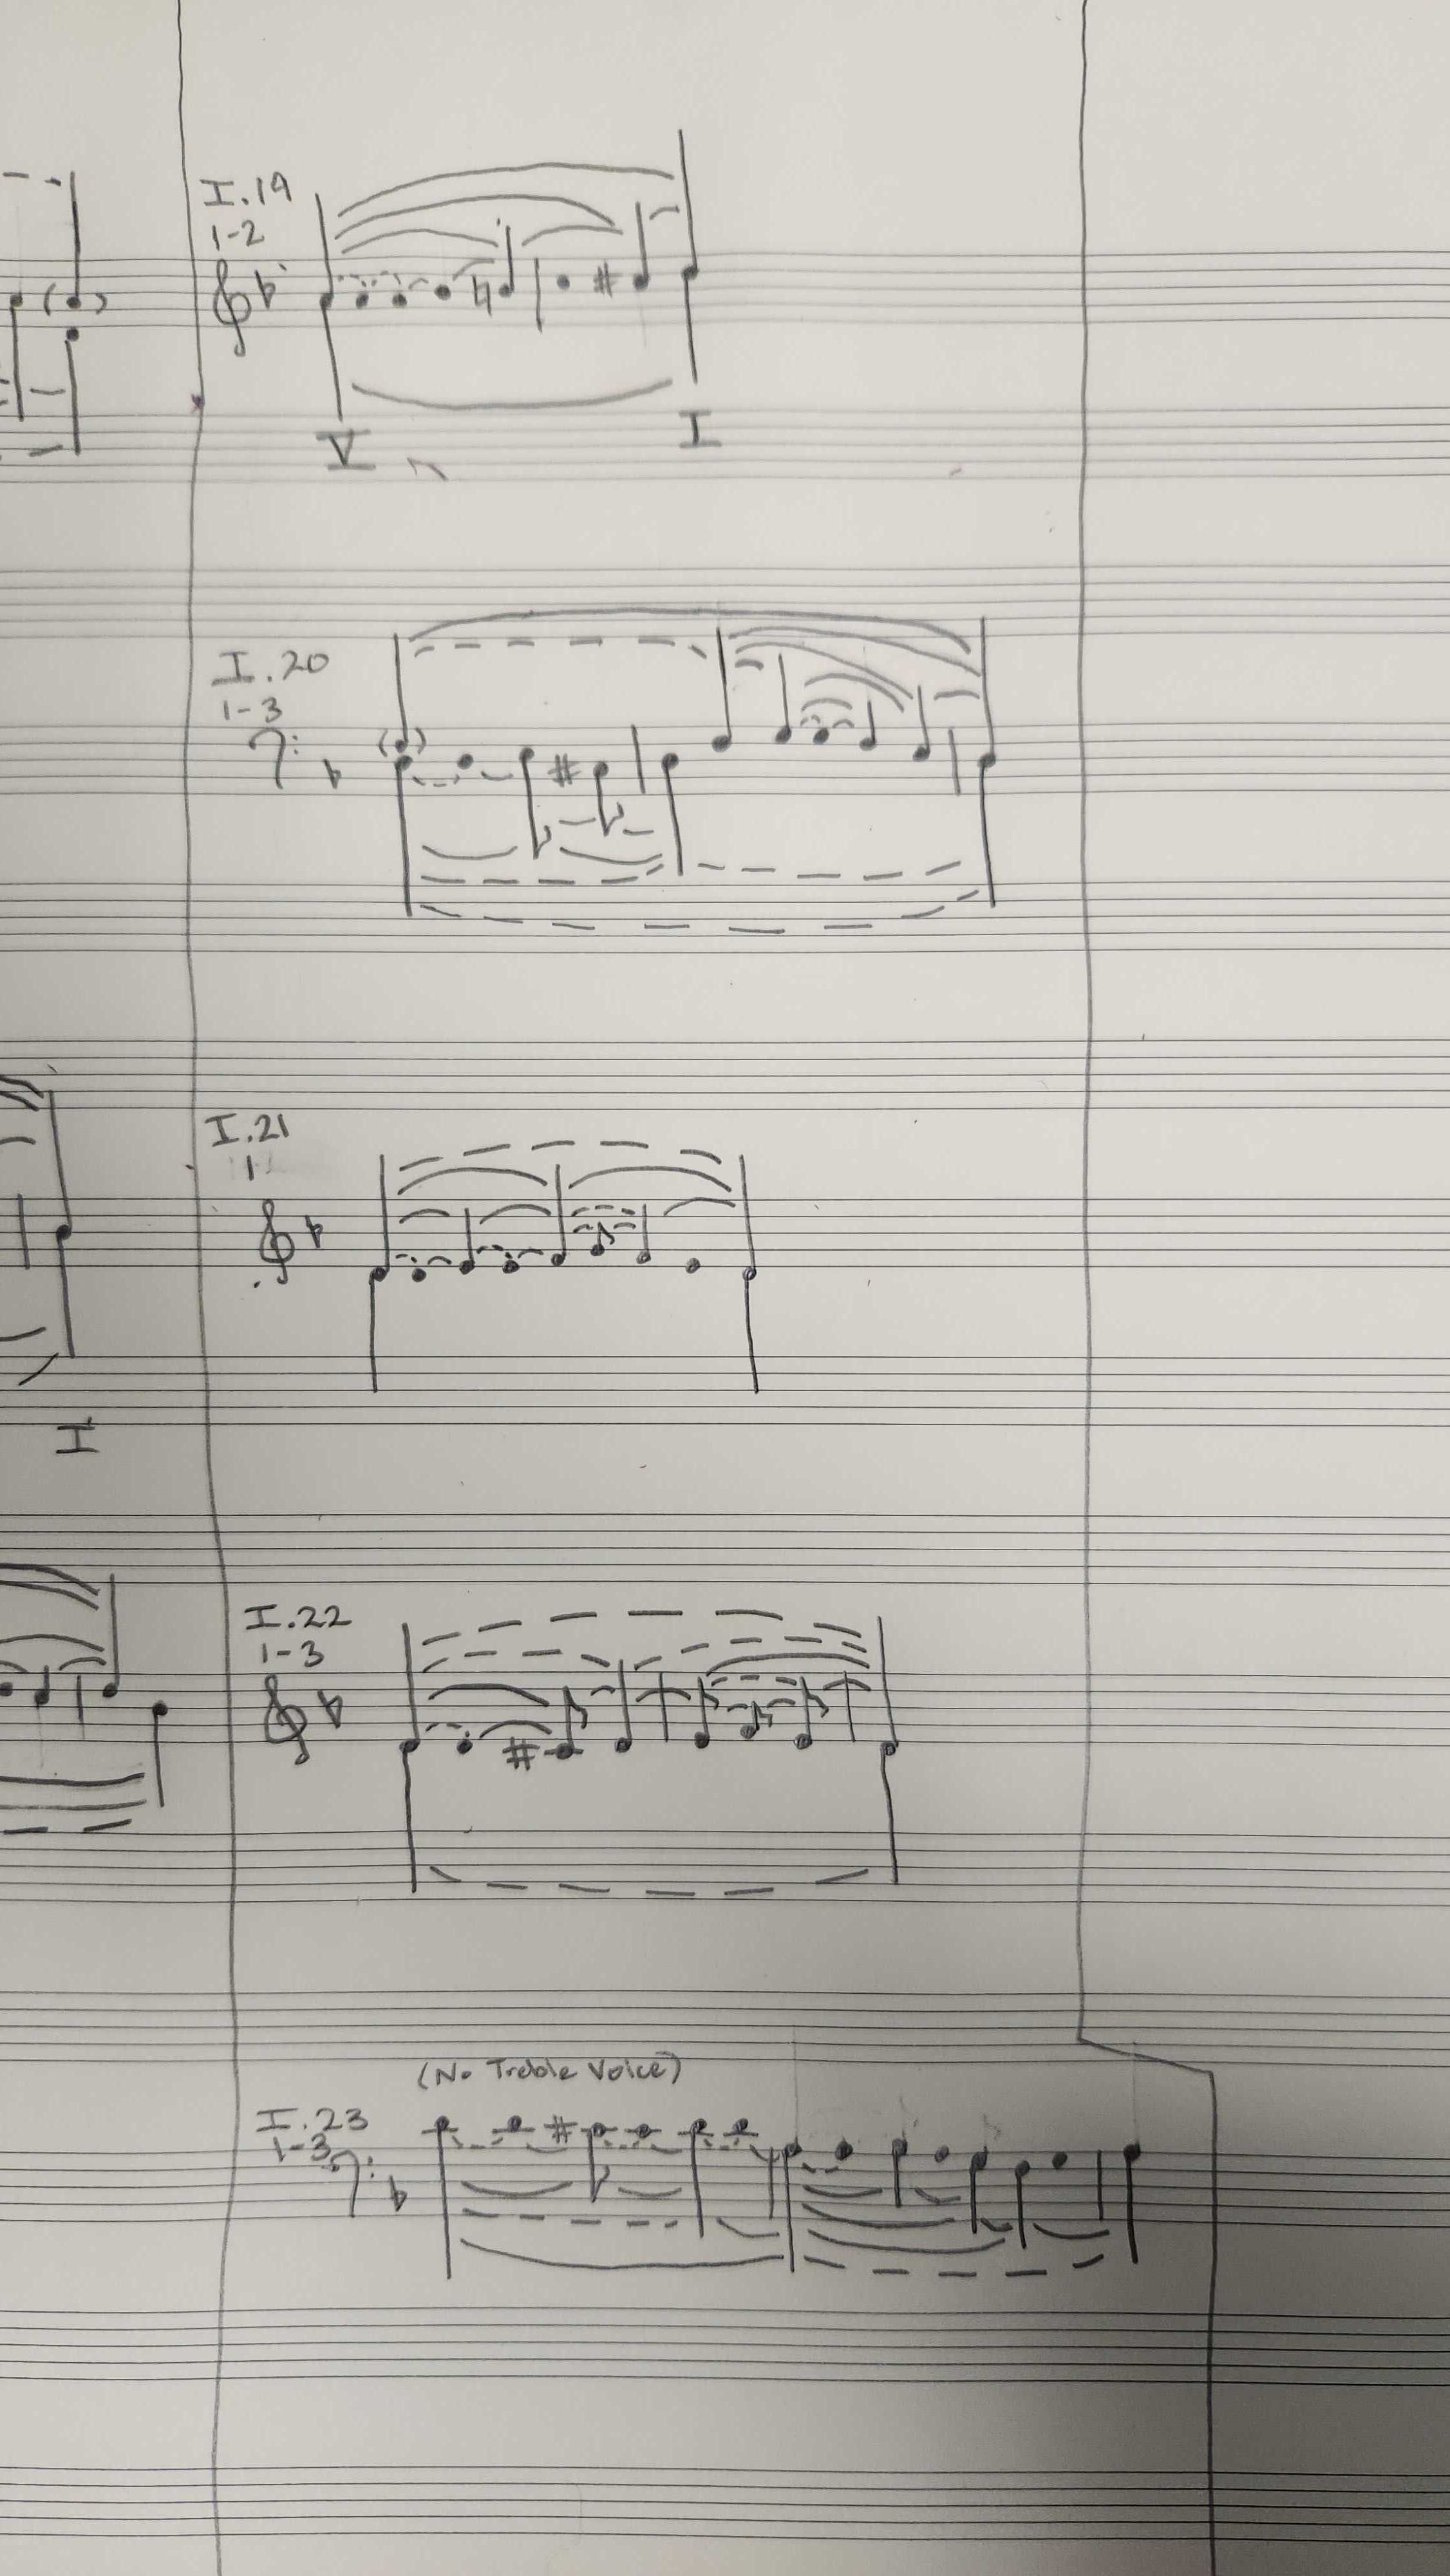 I.19
1-2
V I
I.20
1-3
I.21
1
I
I.22
1-3
(No Treble Voice)
I.23
1-3